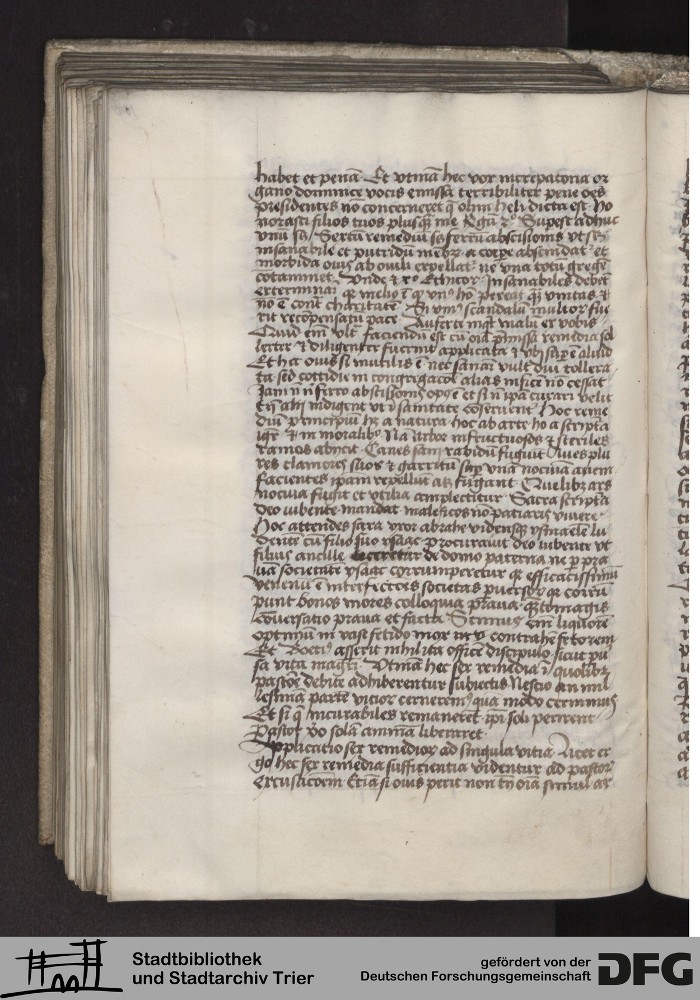 habet et penā · Et vtinā hec vox increpatoria or
gano dominice vocis emissa terribiliter pene oēs
presidentes nō concerneret q̄ olim heli dicta est · Ho
norasti filios tuos plusq̄ me Regū 2º · Supest adhuc
vnū Sextū remediū ferrū abscisionis vt
insanabile et putridū a corpe abscindat et
morbida ovis ab ovili expellat ne vna totū gregē
cōtaminet · Vnde · Insanabiles debēt
exterminari
nō ē charitatē · Si vniº scandalū multor fue
rit recōpensatū pace · Auferte inqt malū ex vobis
Quid em̄ vltra faciendū est cū oīa p̄missa remedia sol
lerter et diligenter fuerint applicata
Et hec ovis si inutilis ē nec sanari vult diu tollera
ta sed cottidie in congregacōe alias inficere nō cessat
Iam ferro abscissionis opº ē et si ipā curari velit
alij indigent vt ī sanitate cōserventr · Hoc reme
diū principiū hȝ a natura · hoc ab arte ho a scriptā
igr̄ et in moralibº Nā arbor infructuosos et steriles
ramos abijcit · Canes sanj rabidū fugiūt Aues plu
res clamores suos et garritū sup vnā nocivā avem
facientes ipam repellūt atȝ fugant Quelibȝ ars
nociva fugit et vtilia amplectitur Sacra scriptā
deo iubente mandat maleficos nō patiaris vivere ·
Hoc attendes sara vxor abrahe vidensq̄ ysmaelē lu
dentē cū filio suo ysaac procuravit deo iubente vt
filius ancille eiceretur de domo paterna ne p pra
vā societatē ysaac corrumperetur qr efficacissimū
venenū ē interfectores societas pversor qr corrū
punt bonos mores colloquia prava · q̄tomagis
cōversatio prava et facta · Scimus em̄ liquorē
optimū in vase fetido mox contrahere fetorem
Et Boetiº asserit nihil ita officere discipulo sicut pu
sa vita magrī · Vtinā hec sex remedia ī quolibȝ
pastore debite adhiberentur subiectis Nescio an mil
lesimā partē vicior cernerem qua modo cernimus
Et si q̄ incurabiles remanerēt ipi soli perirent
Pastor vo solā animā liberaret
Applicatio sex remedior ad singula vitia Licet er
go hec sex remedia sufficientia videntur ad pastor
excusacōem Etiā si ovis perit non tn̄ oīa simul ac
Stadtbibliothek
und Stadtarchiv Trier
gefördert von der
Deutschen Forschungsgemeinschaft
DFG